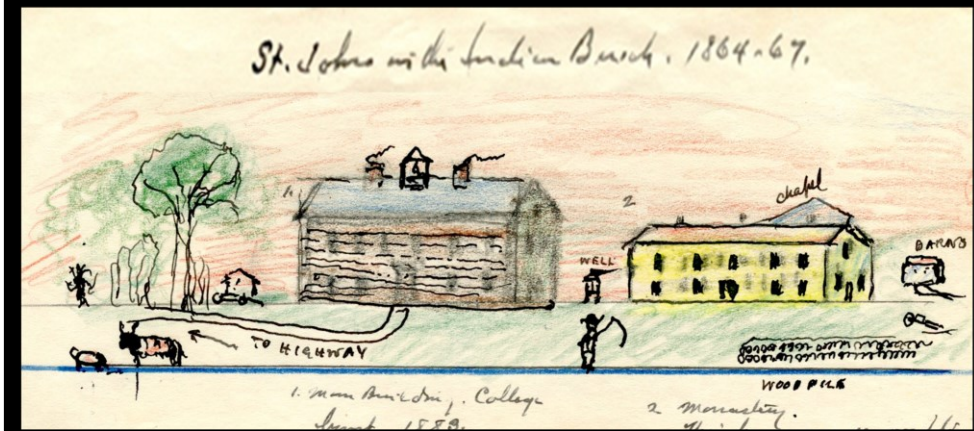 St. Johns in the Indian Bush. 1864-67.
chapel
1
2
BARNS
WELL
TO HIGHWAY
WOODPILE
1. Main Building. College
2 Monastery.
burnt 1889.